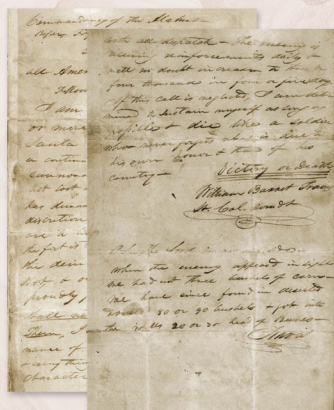 Commandancy of the Alamo
Bejar, F
all Amer
Fellow
I am
or more
Santa
a contin
cannona
not lost
has deman
discretion
are to
the fort is
the dem
shot & o
proudly f
call on
character
with all dispatch – The enemy is
receiving reinforcements daily &
will no doubt increase to
four thousand in four or five days.
If this call is neglected, I am deter
mined to sustain myself as long as
possible & die like a soldier
who never forgets what is due to
his own honor & that of his
country –
Victory or Death
William Barret Travis
Lt. Col. comdt
P.S. The Lord is on our side –
When the enemy appeared in sight
we had not three bushels of corn –
We have since found in deserted
houses 80 or 90 bushels & got into
the walls 20 or 30 head of Beeves –
Travis